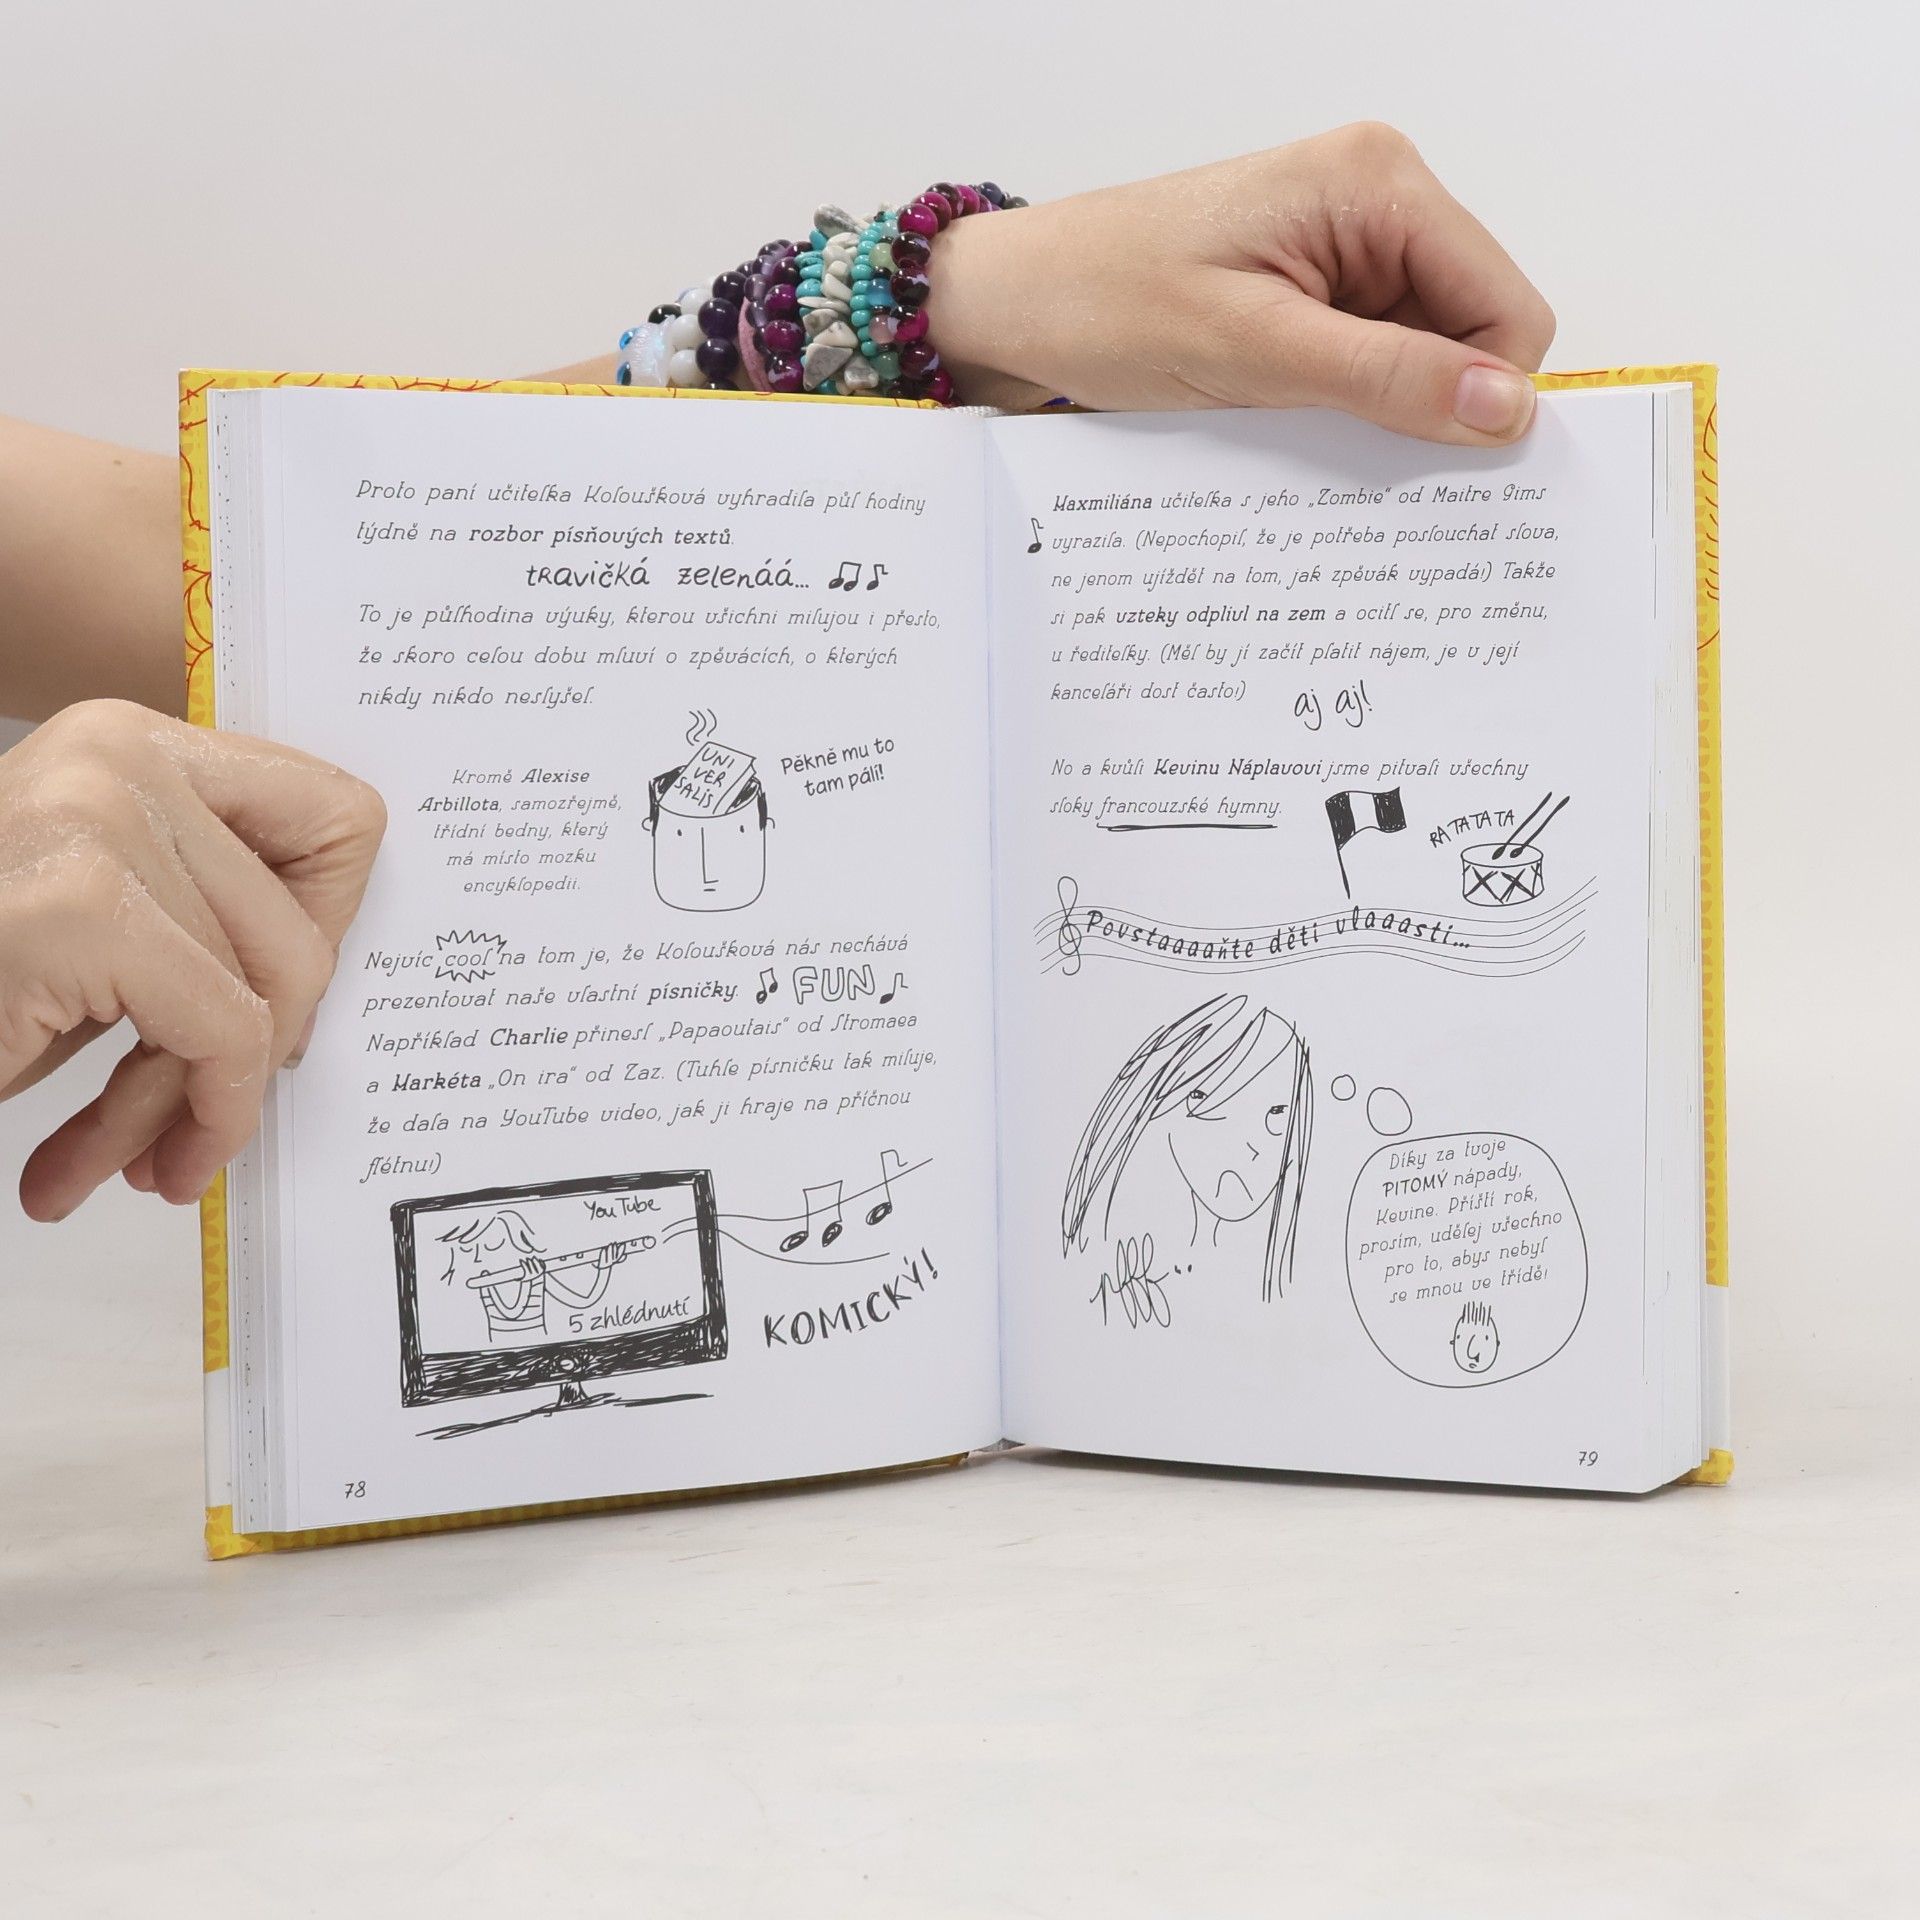 Proto paní učitelka Koloušková vyhradila půl hodiny
týdně na rozbor písňových textů.
tRavičká zelenáá...
To je půlhodina výuky, kterou všichni milujou i přesto,
že skoro celou dobu mluví o zpěvácích, o kterých
nikdy nikdo neslyšel.
Kromě Alexise
Arbillota, samozřejmě,
třídní bedny, který
má místo mozku
encyklopedii.
UNI
VER
SALIS
Pěkně mu to
tam pálí!
Nejvíc cool na tom je, že Koloušková nás nechává
prezentovat naše vlastní písničky.
FUN
Například Charlie přinesl „Papaoutais“ od Stromaea
a Markéta „On ira“ od Zaz. (Tuhle písničku tak miluje,
že dala na YouTube video, jak ji hraje na příčnou
flétnu!)
YouTube
5 zhlédnutí
KOMICKÝ!
78
Maxmiliána učitelka s jeho „Zombie“ od Maitre Gims
vyrazila. (Nepochopil, že je potřeba poslouchat slova,
ne jenom ujíždět na tom, jak zpěvák vypadá!) Takže
si pak vzteky odplivl na zem a ocitl se, pro změnu,
u ředitelky. (Měl by jí začít platit nájem, je v její
kanceláři dost často!)
aj aj!
No a kvůli Kevinu Náplavovi jsme pitvali všechny
sloky francouzské hymny.
RA TA TA TA
Povstaaaaňte děti vlaaasti...
Pffff...
Díky za tvoje
PITOMÝ nápady,
Kevine. Příští rok,
prosím, udělej všechno
pro to, abys nebyl
se mnou ve třídě!
79